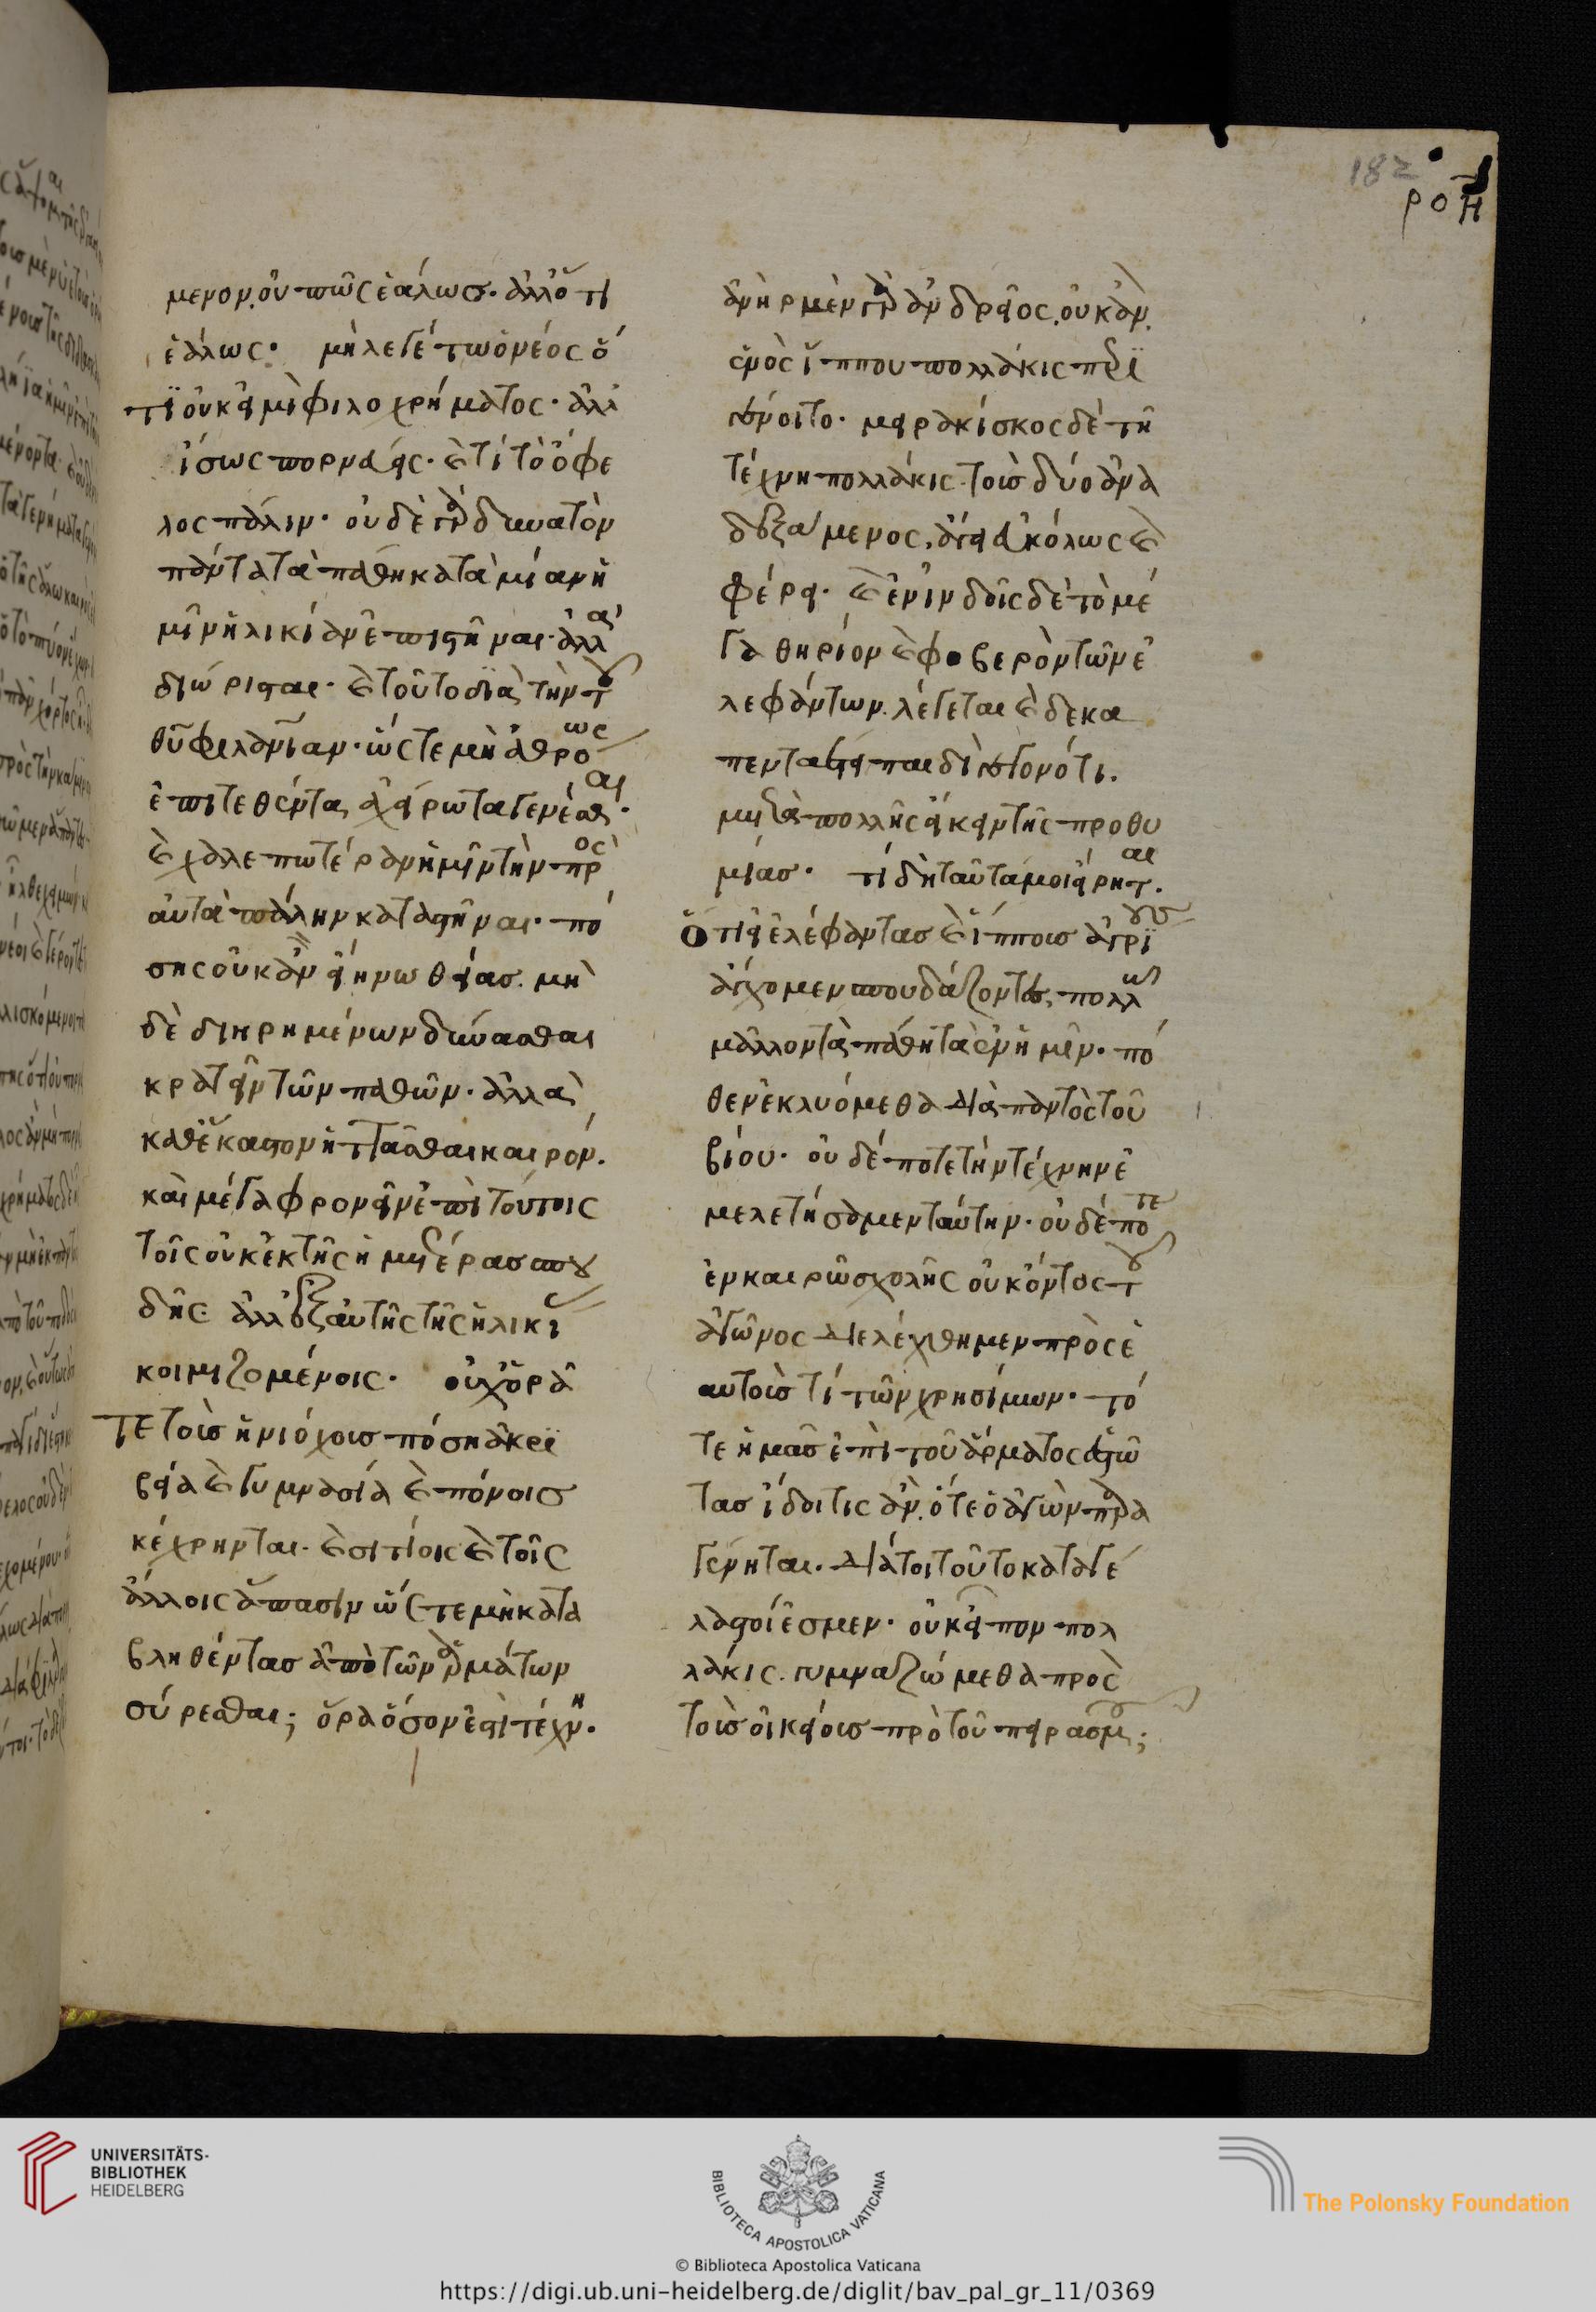 182
ροη
μενον. οὐ πῶς ἑάλως. ἀλλ' ὅτι
ἑάλως. μὴ λεγέτω ὁ νέος ὅ
τι οὐκ εἰμὶ φιλοχρήματος. ἀλλ'
ἴσως πορνεύεις. καὶ τί τὸ ὄφε
λος πάλιν. οὐδὲ γὰρ δυνατὸν
πάντα τὰ πάθη κατὰ μίαν ἡ
μῖν ἡλικίαν ἐπιστῆναι. ἀλλὰ
διώρισται. καὶ τοῦτο διὰ τὴν τοῦ
θῦ φιλανΐαν. ὥστε μὴ ἀθρόως
ἐπιτεθέντα, ἀχείρωτα γενέσθαι.
καὶ χαλεπωτέραν ἡμῖν τὴν πρὸς
αὐτὰ πάλην καταστῆναι. πό
σης οὐκ ἂν εἴη νωθείας. μὴ
δὲ διῃρημένων δύνασθαι
κρατεῖν τῶν παθῶν. ἀλλὰ
καθ' ἕκαστον ἡττᾶσθαι καιρόν.
καὶ μέγα φρονεῖν ἐπὶ τούτοις
τοῖς οὐκ ἐκ τῆς ἡμετέρας σπου
δῆς. ἀλλ' ἐξ αὐτῆς τῆς ἡλικίας
κομιζομένοις. οὐχ ὁρᾶ
τε τοὺς ἡνιόχους πόση ἀκρι
βεία καὶ γυμνασία καὶ πόνοις
κέχρηνται. καὶ σιτίοις καὶ τοῖς
ἄλλοις ἅπασιν ὥστε μὴ κατα
βληθέντας ἀπὸ τῶν ἁρμάτων
σύρεσθαι; ὅρα ὅσον ἐστὶ τέχνη.
ἀνὴρ μὲν γὰρ ἀνδρεῖος. οὐκ ἂν
ἑνὸς ἵππου πολλάκις περι
γένοιτο. μειρακίσκος δὲ τῇ
τέχνη πολλάκις τοὺς δύο ἀνα
δεξάμενος, ἄγει εὐκόλως καὶ
φέρει. καὶ ἐν ἰνδοῖς δὲ τὸ μέ
γα θηρίον καὶ φοβερὸν τῶν ἐ
λεφάντων. λέγεται καὶ δεκα
πενταετεῖ παιδὶ γεγονότι.
μετὰ πολλῆς εἴκειν τῆς προθυ
μίας. τί δὴ ταῦτά μοι εἴρηται.
Ὅτι εἰ ἐλέφαντας καὶ ἵππους ἀγρίους
ἄγχομεν σπουδάζοντες, πολλῷ
μᾶλλον τὰ πάθη τὰ ἐν ἡμῖν. πό
θεν ἐκλυόμεθα διὰ παντὸς τοῦ
βίου. οὐδέποτε τὴν τέχνην ἐ
μελετήσαμεν ταύτην. οὐδέποτε
ἐν καιρῷ σχολῆς οὐκ ὄντος τοῦ
ἀγῶνος διελέχθημεν πρὸς ἑ
αυτοὺς τί τῶν χρησίμων. τό
τε ἡμᾶς ἐπὶ τοῦ ἅρματος ἑστῶ
τας ἴδοι τις ἄν. ὅτε ὁ ἀγὼν παρα
γένηται. διάτοι τοῦτο καταγέ
λαστοί ἐσμεν. οὐκ εἶπον πολ
λάκις. γυμναζώμεθα πρὸς
τοὺς οἰκείους πρὸ τοῦ πειρασμοῦ;
UNIVERSITÄTS-
BIBLIOTHEK
HEIDELBERG
BIBLIOTECA APOSTOLICA VATICANA
The Polonsky Foundation
© Biblioteca Apostolica Vaticana
https://digi.ub.uni-heidelberg.de/diglit/bav_pal_gr_11/0369